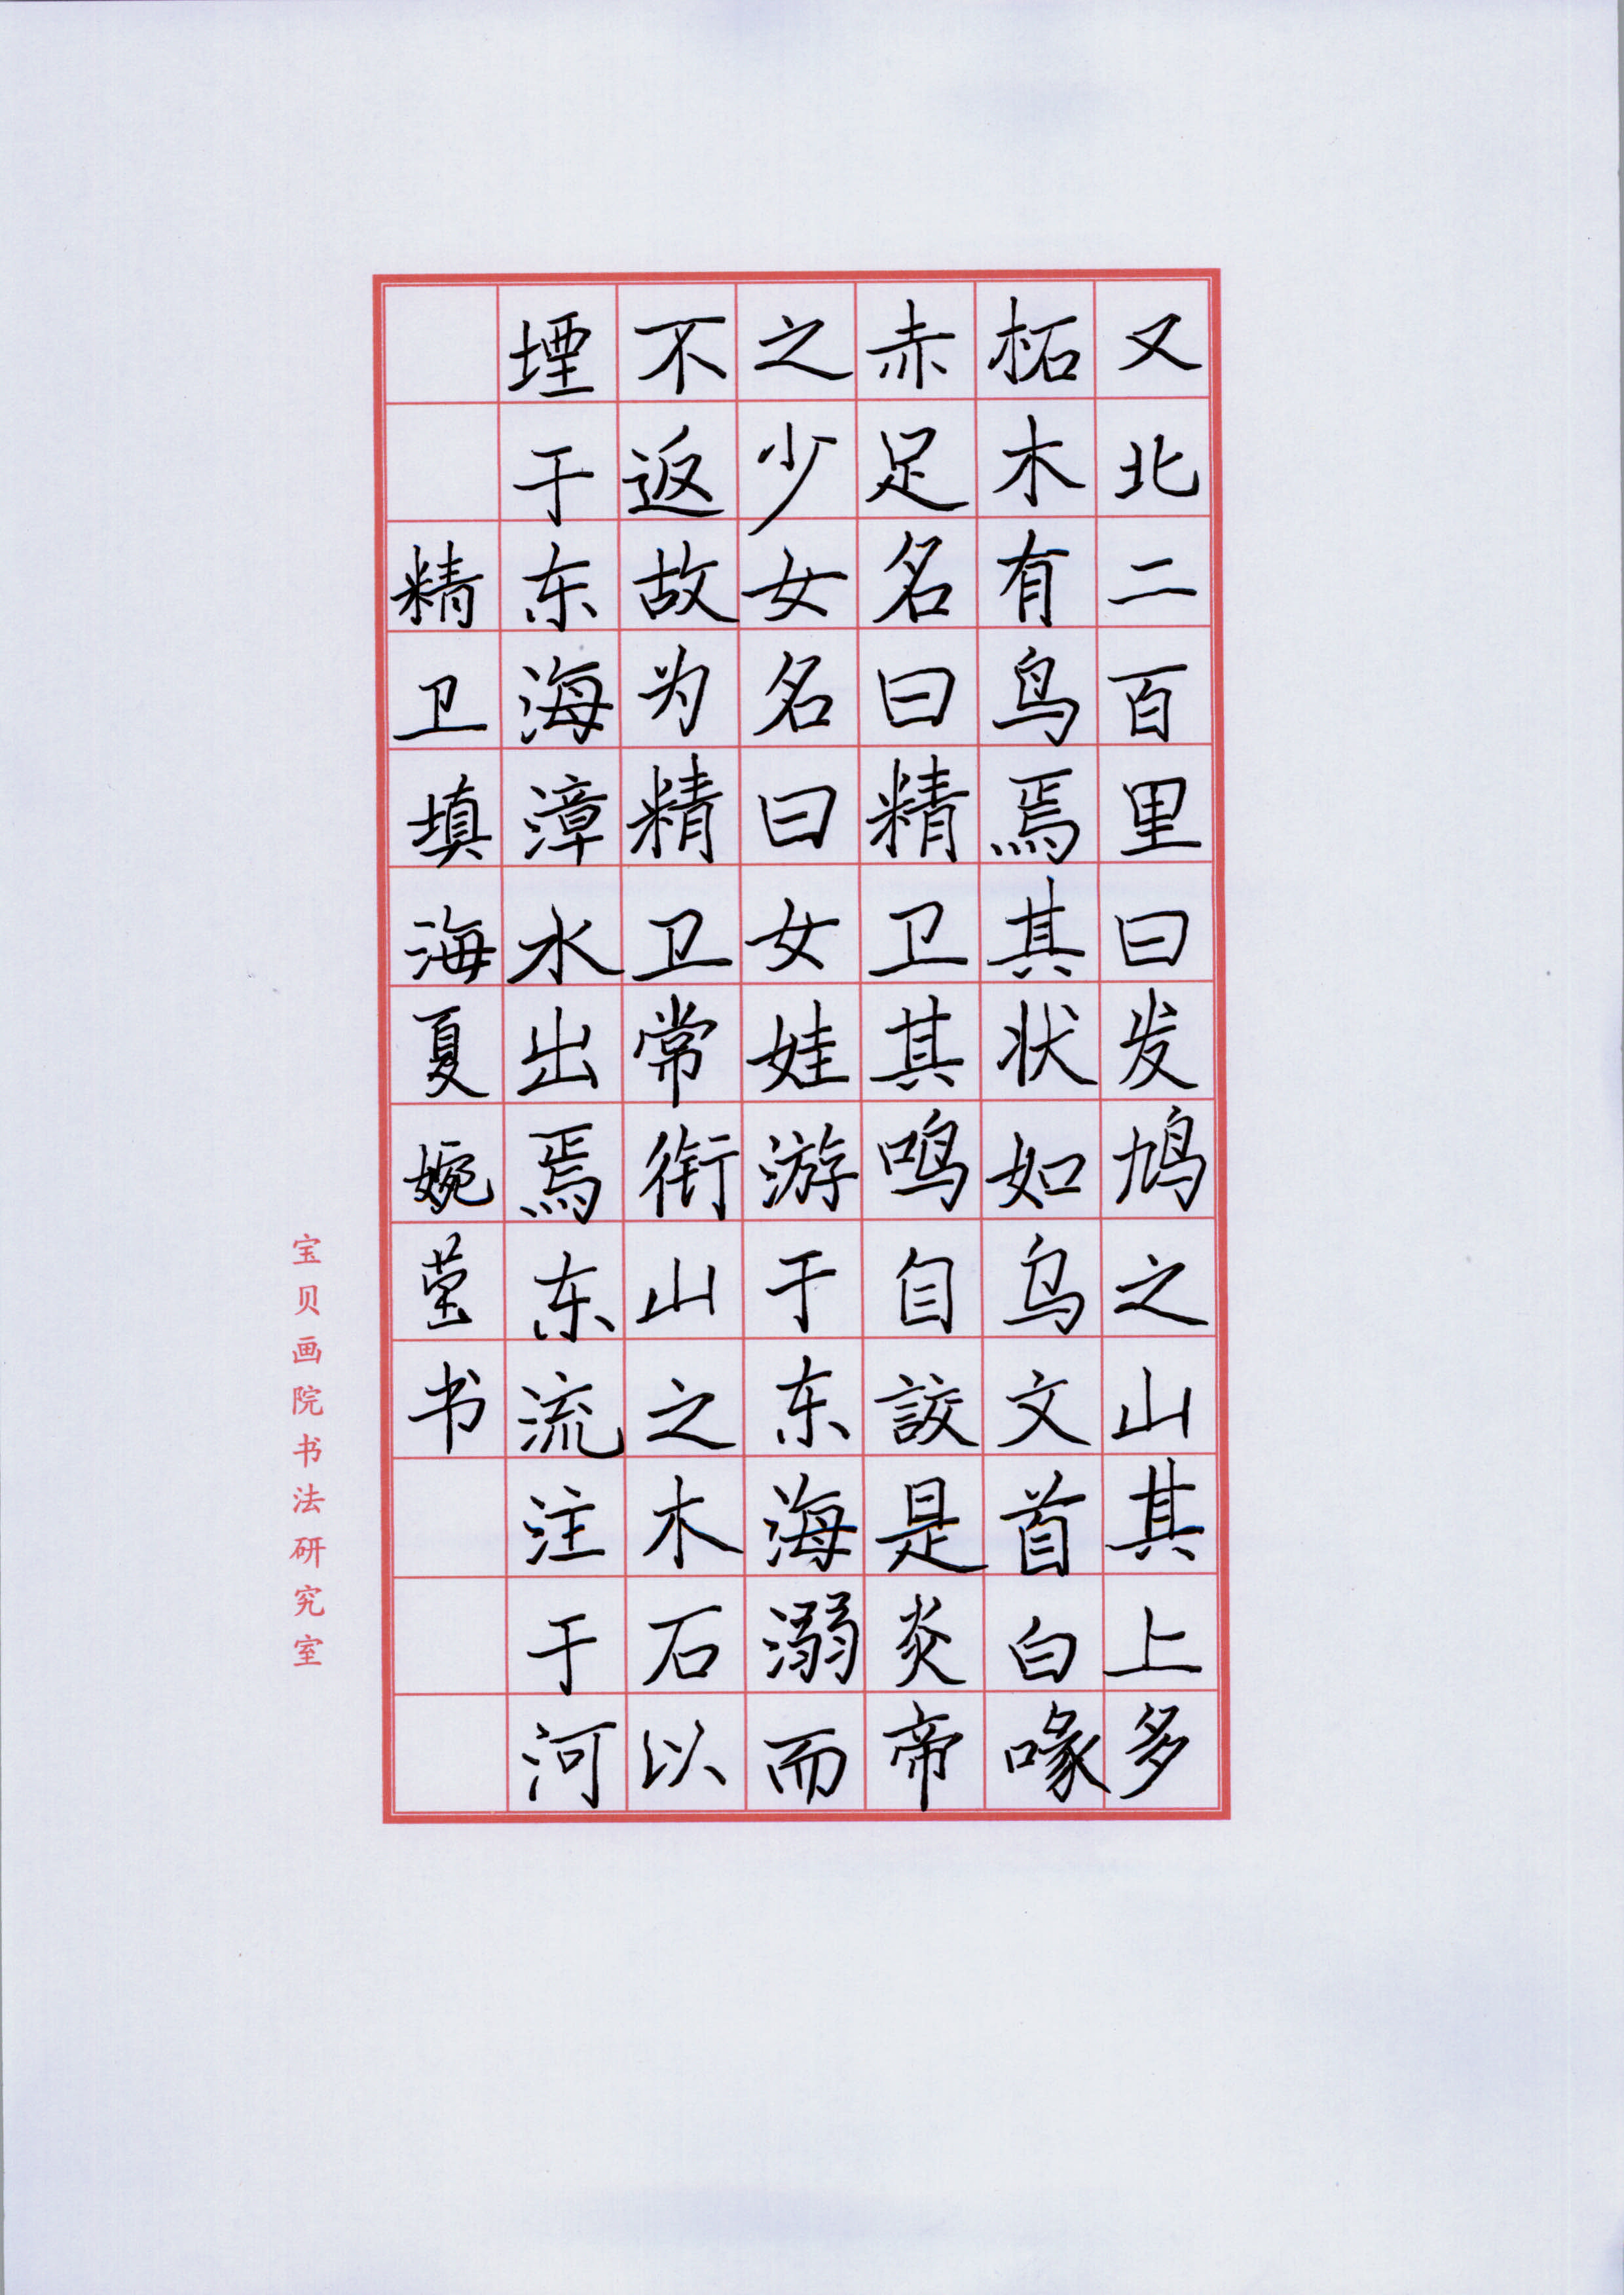 又北二百里曰发鸠之山其上多
柘木有鸟焉其状如乌文首白喙
赤足名曰精卫其鸣自詨是炎帝
之少女名曰女娃游于东海溺而
不返故为精卫常衔山之木石以
堙于东海漳水出焉东流注于河
精卫填海夏婉莹书
宝贝画院书法研究室